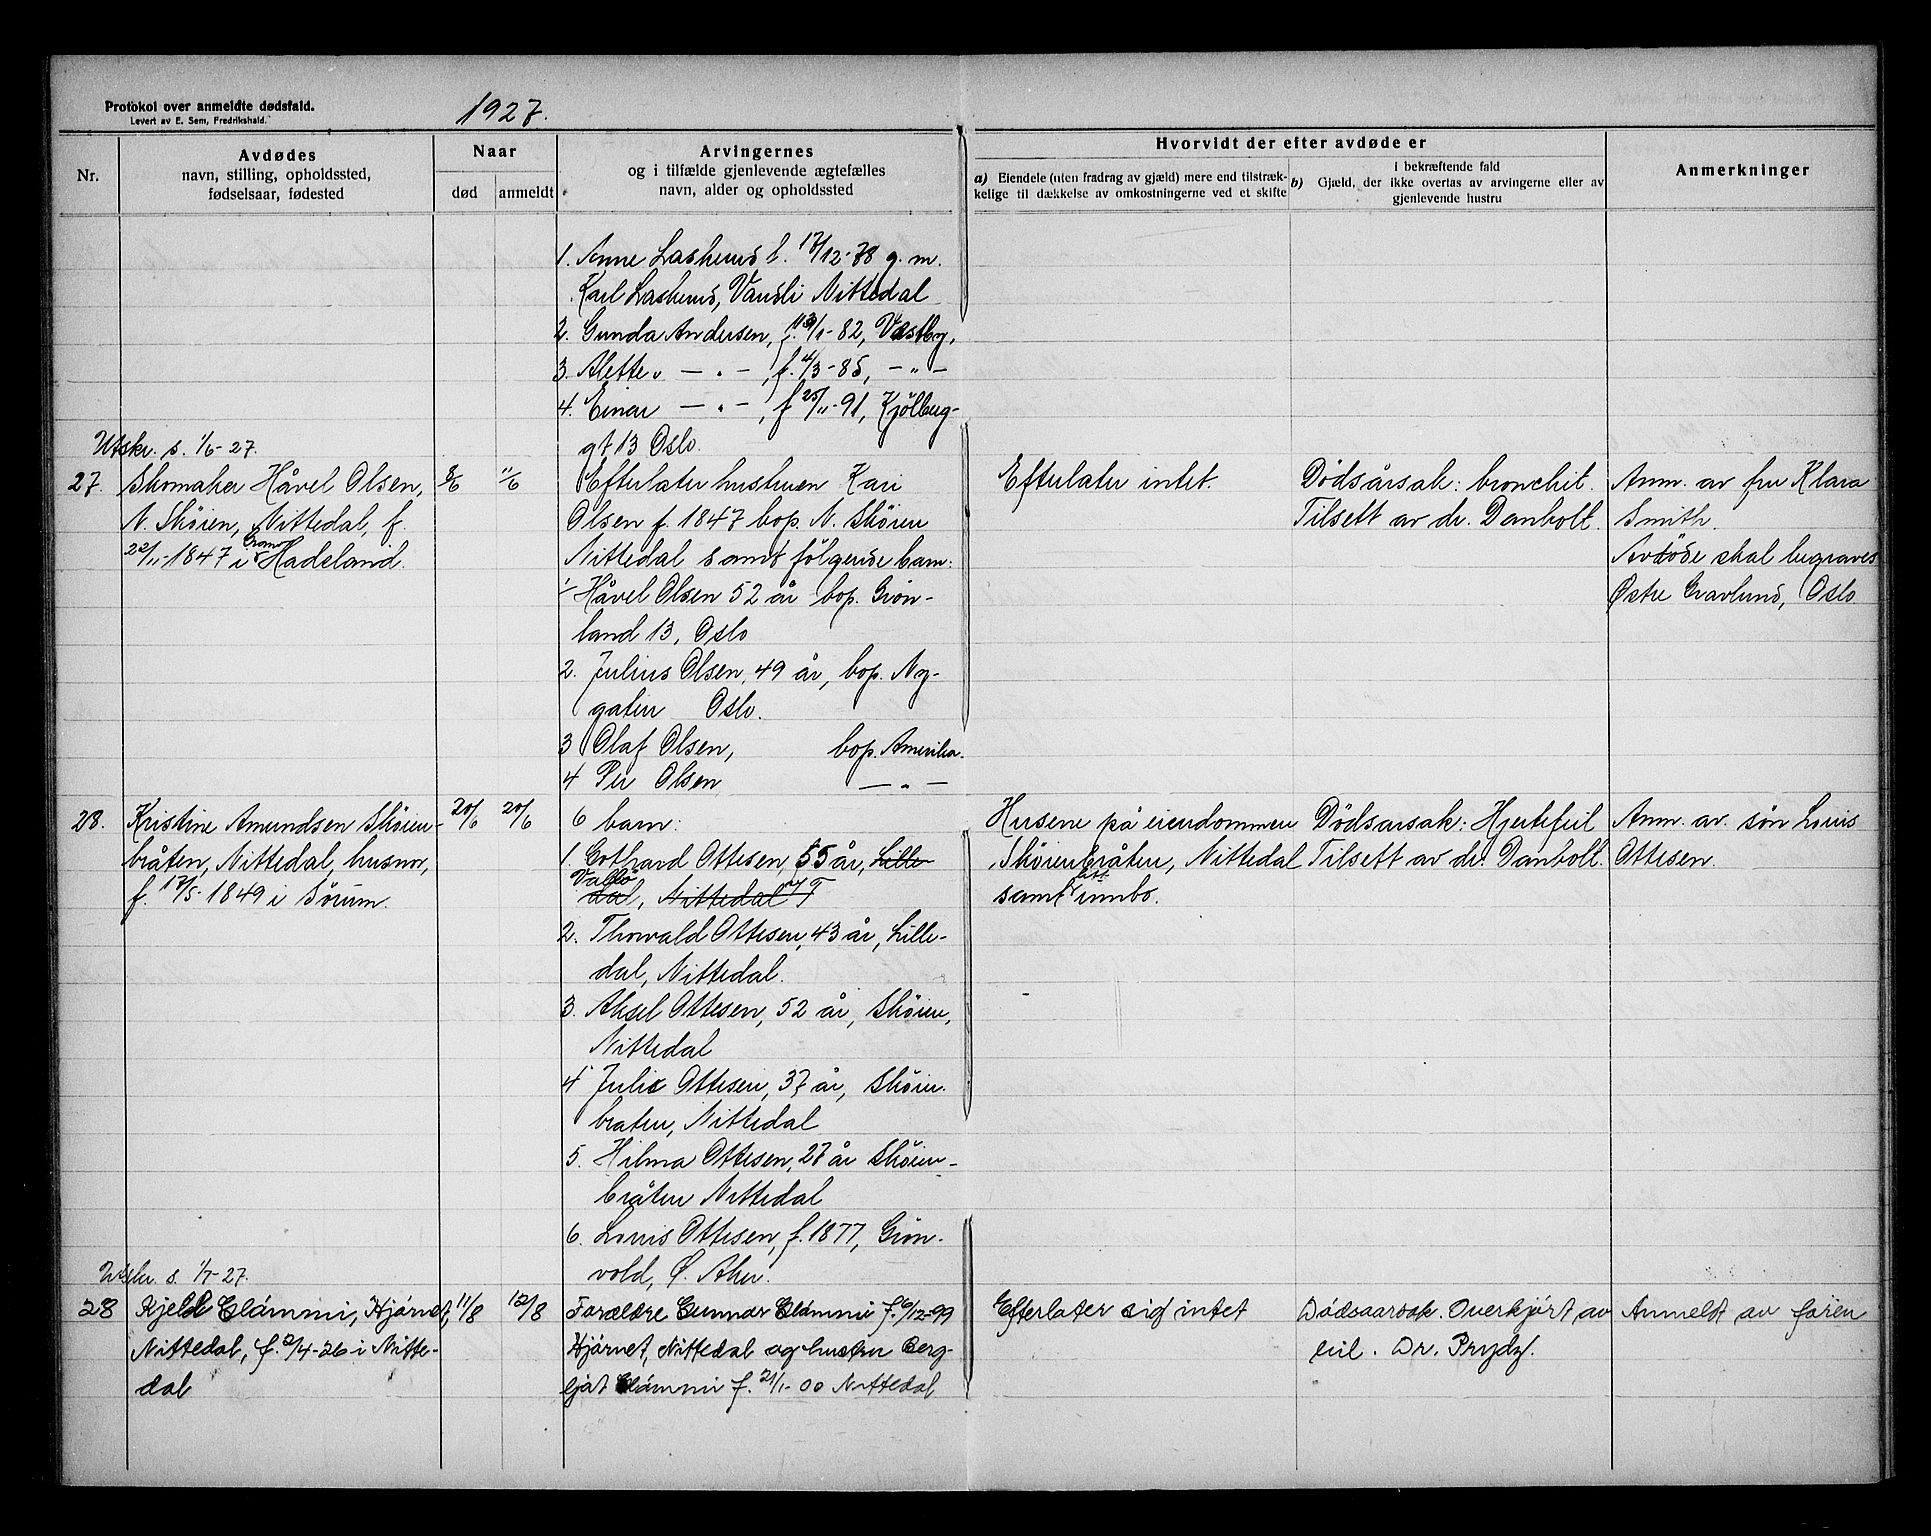 Protokol over anmeldte dødsfald.
Levert av E. Sem, Fredrikshald.
1927.
Nr.
Avdødes
navn, stilling, opholdssted,
fødselsaar, fødested
Naar
død
anmeldt
Arvingernes
og i tilfælde gjenlevende ægtefælles
navn, alder og opholdssted
Hvorvidt der efter avdøde er
a) Eiendele (uten fradrag av gjæld) mere end tilstræk-
kelige til dækkelse av omkostningerne ved et skifte
i bekræftende fald
b) Gjæld, der ikke overtas av arvingerne eller av
gjenlevende hustru
Anmerkninger
1. Anne Laskerud f. 17/12-78 g. m.
Karl Laskerud, Vardli Nittedal
2. Gunda Andersen, f. 13/1-82, Vestby,
3. Alette " — " — , f. 4/3-85, — " —
4. Einar — " — , f 25/11-91, Kjølberg-
gt 13 Oslo.
Utskr. s. 1/6-27.
27. Skomaker Håvel Olsen,
N. Skøien, Nittedal, f.
22/11-1847 i Gran Hadeland.
8/6
11/6
Efterlater hustruen Kari
Olsen f. 1847 bop. N. Skøien
Nittedal samt følgende barn:
1. Håvel Olsen 52 år bop. Grøn-
land 13, Oslo
2. Julius Olsen, 49 år, bop. Ny-
gaten Oslo.
3 Olaf Olsen, bop. Amerika.
4 Per Olsen — " —
Efterlater intet.
Dødsårsak: bronchit.
Tilsett av dr. Danbolt.
Anm. av fru Klara
Smith.
Avdøde skal begraves
Østre Gravlund, Oslo
28. Kristine Amundsen Skøien-
bråten, Nittedal, husmor,
f. 17/5-1849 i Sørum.
20/6
20/6
6 barn:
1. Gothard Ottesen, 55 år, Lille-
dal, Nittedal
2. Thorvald Ottesen, 43 år, Lille-
dal, Nittedal.
3. Aksel Ottesen, 52 år, Skøien,
Nittedal
4 Julie Ottesen, 37 år, Skøien-
braten, Nittedal
5. Hilma Ottesen, 27 år Skøien-
bråten Nittedal
6. Louis Ottesen, f. 1877, Grøn-
vold, Ø. Aker.
Husene på eiendommen
Skøienbråten, Nittedal
samt litt innbo.
Dødsarsak: Hjertefeil
Tilsett av dr. Danbolt.
Anm. av søn Louis
Ottesen.
Utskr. s. 1/7-27.
28 Kjeld Glámmi, Hjørnet,
Nittedal, f. 2/4-26 i Nitte-
dal
11/8
12/8
Forældre Gunnar Glámmi f. 6/12-99
Hjørnet, Nittedal og hustru Berg-
ljót Glámmi f. 21/1-00 Nittedal
Efterlater sig intet
Dødsaarsak. Overkjørt av
bil. Dr. Prydz.
Anmeldt av faren